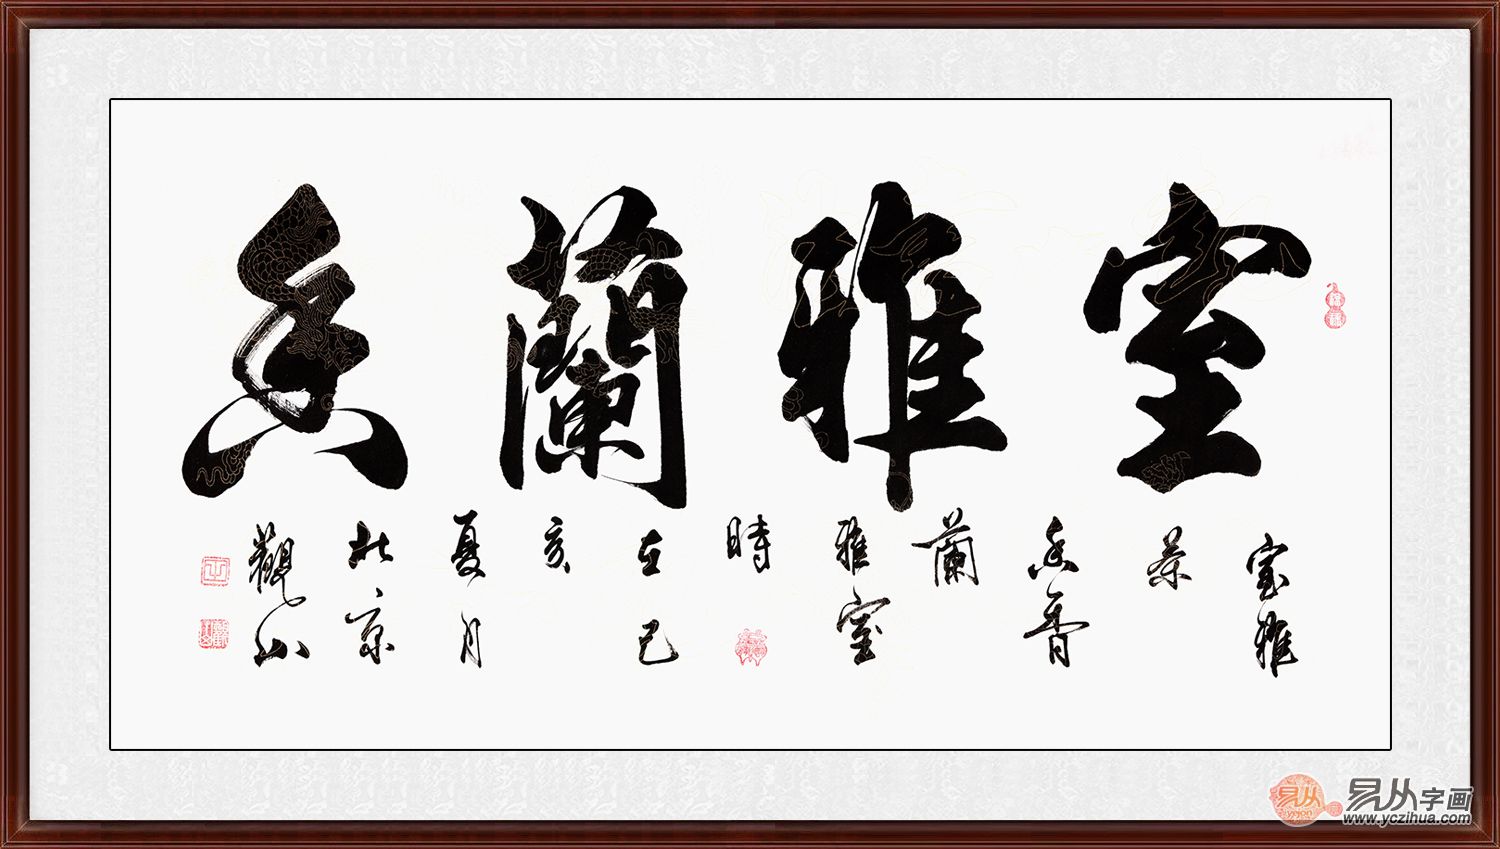 室雅蘭香
室雅
茶
香
蘭
雅室
時
在己
亥
夏月
北京
觀山
易从
易从字画
www.yczihua.com